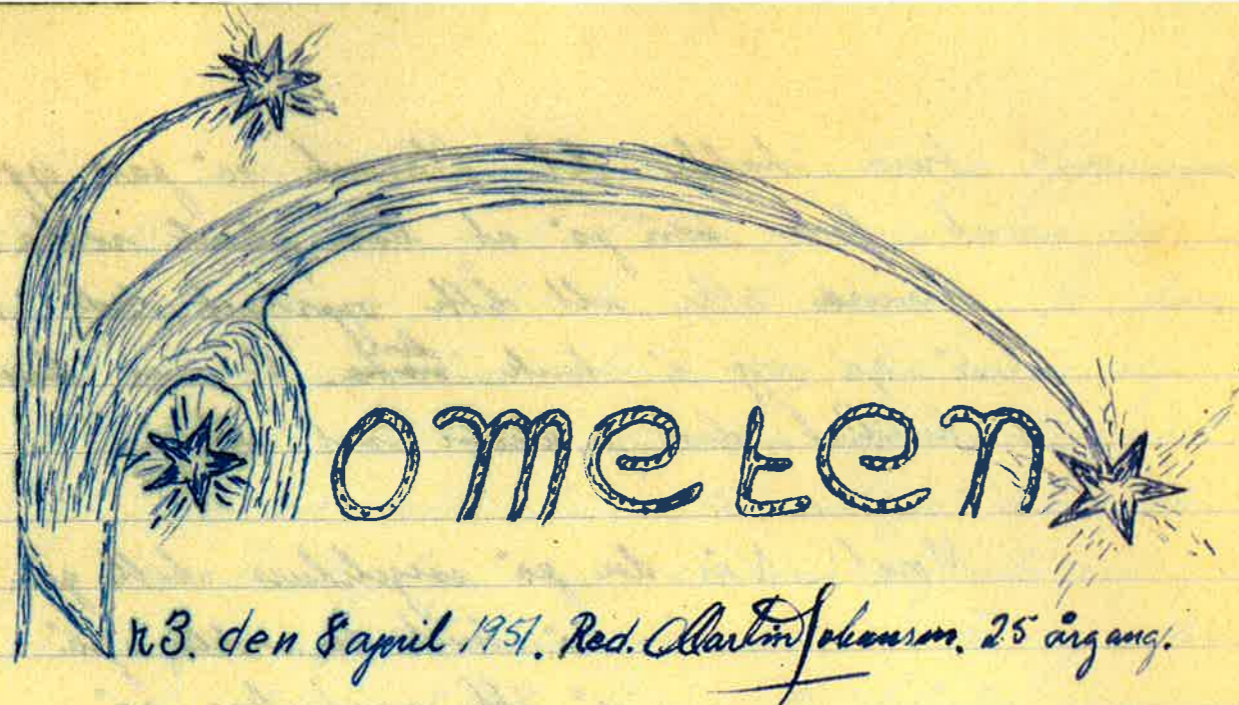 Kometen
n3. den 8 april 1951. Red. Martin Johansson. 25 årgang.